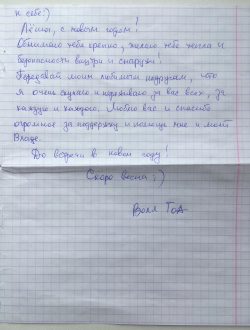 к себе:)
Лёша, с новым годом!
Обнимаю тебя крепко, желаю тебе тепла и
безопасности внутри и снаружи.
Передавай моим любимым подругам, что
я очень скучаю и переживаю за вас всех, за
каждую и каждого. Люблю вас и спасибо
огромное за поддержку и помощь мне и моей
Владе.
До встречи в новом году!
Скоро весна :)
Волл ТоД